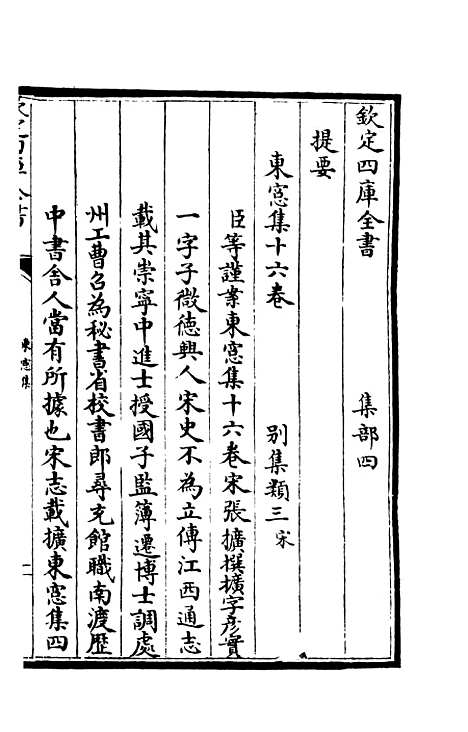 欽定四庫全書　　　集部四
提要
東窓集十六卷　　　別集類三宋
臣等謹案東窓集十六卷宋張擴撰擴字彥實
一字子微德興人宋史不為立傳江西通志
載其崇寧中進士授國子監簿遷博士調處
州工曹召為秘書省校書郎尋充館職南渡歴
中書舍人當有所據也宋志載擴東窓集四
東窓集